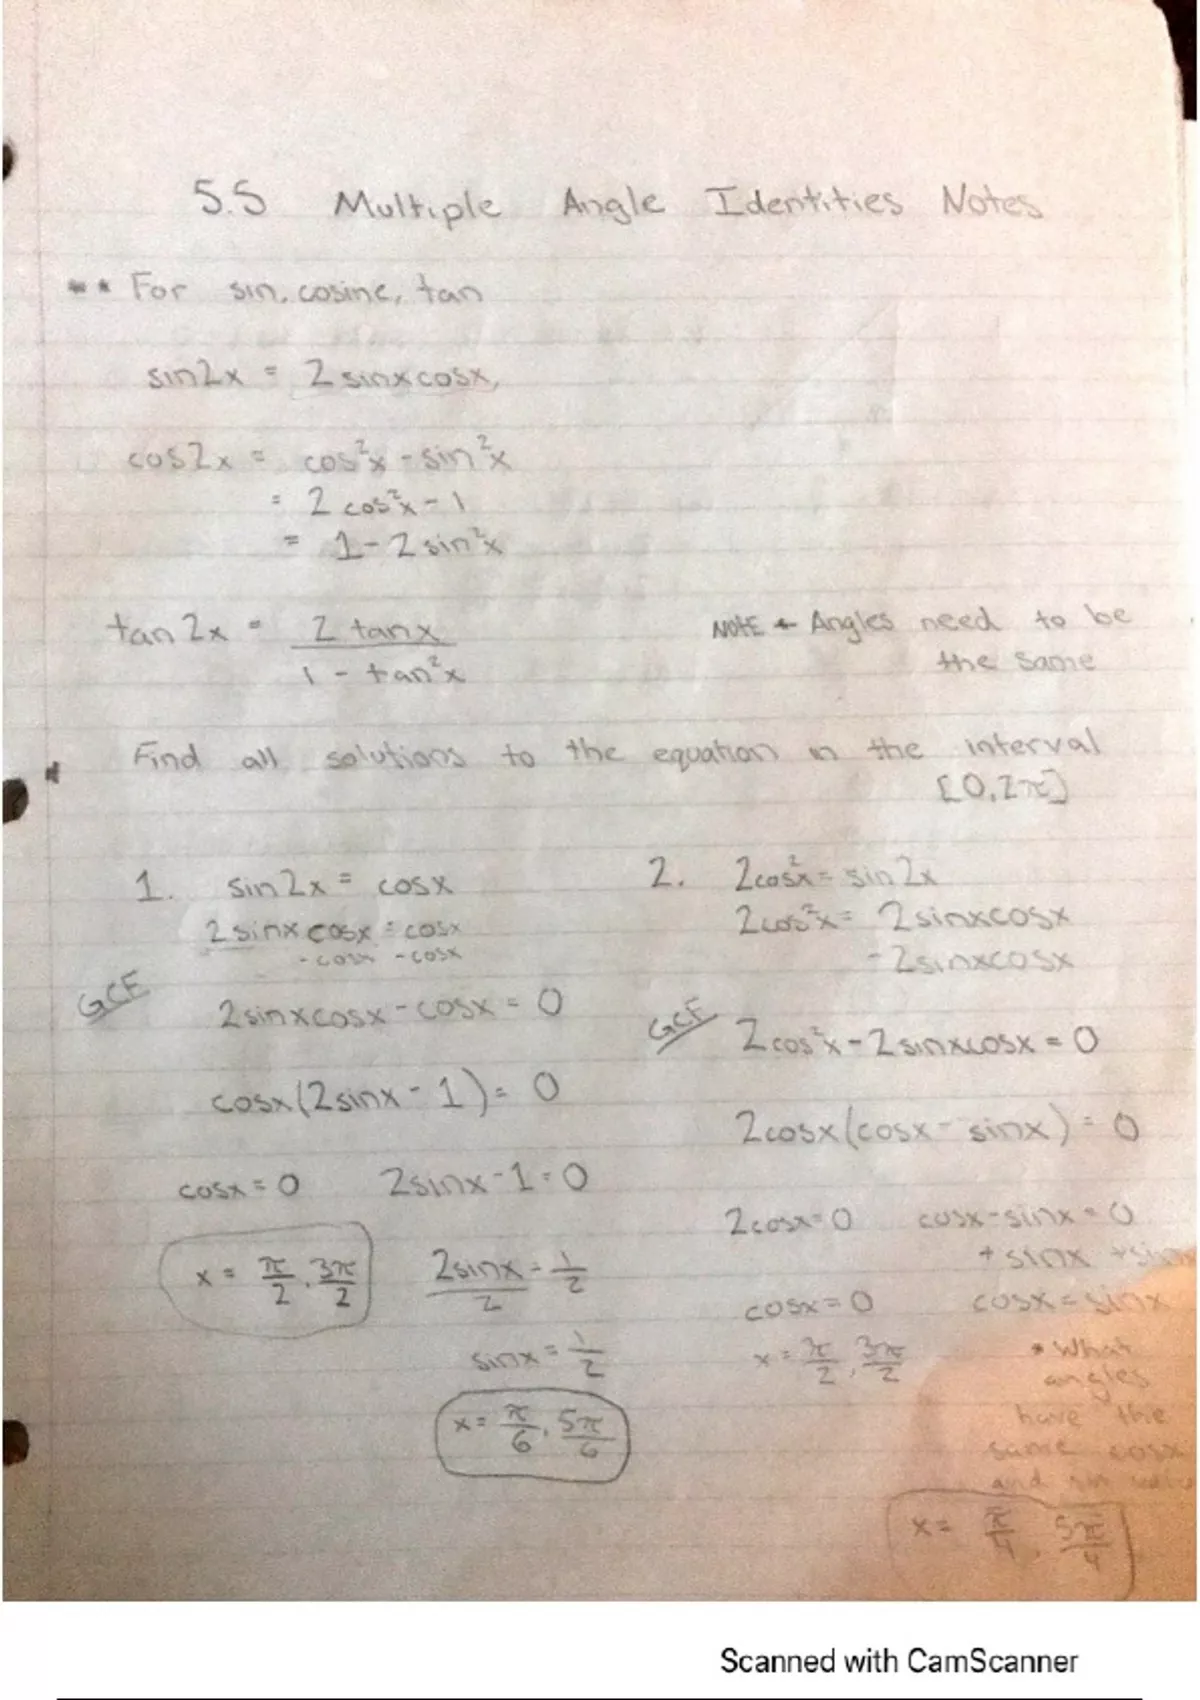 5.5 Multiple Angle Identities Notes
** For sin, cosine, tan
sin2x = 2 sinxcosx,
cos2x = cos²x - sin²x
= 2 cos²x - 1
= 1 - 2 sin²x
tan 2x = 2 tanx
1 - tan²x
NOTE ← Angles need to be
the same
* Find all solutions to the equation in the interval
[0,2π]
1. sin2x = cosx
2 sinx cosx = cosx
- cosx - cosx
GCF
2 sinxcosx - cosx = 0
cosx(2sinx - 1) = 0
cosx = 0 2sinx - 1 = 0
x = π/2, 3π/2
2sinx/2 = 1/2
sinx = 1/2
x = π/6, 5π/6
2. 2cos²x = sin2x
2cos²x = 2sinxcosx
- 2sinxcosx
GCF
2cos²x - 2sinxcosx = 0
2cosx(cosx - sinx) = 0
2cosx = 0 cosx - sinx = 0
+ sinx + sinx
cosx = 0 cosx = sinx
x = π/2, 3π/2
* What
angles
have the
same cosx
and sin
x = π/4, 5π/4
Scanned with CamScanner